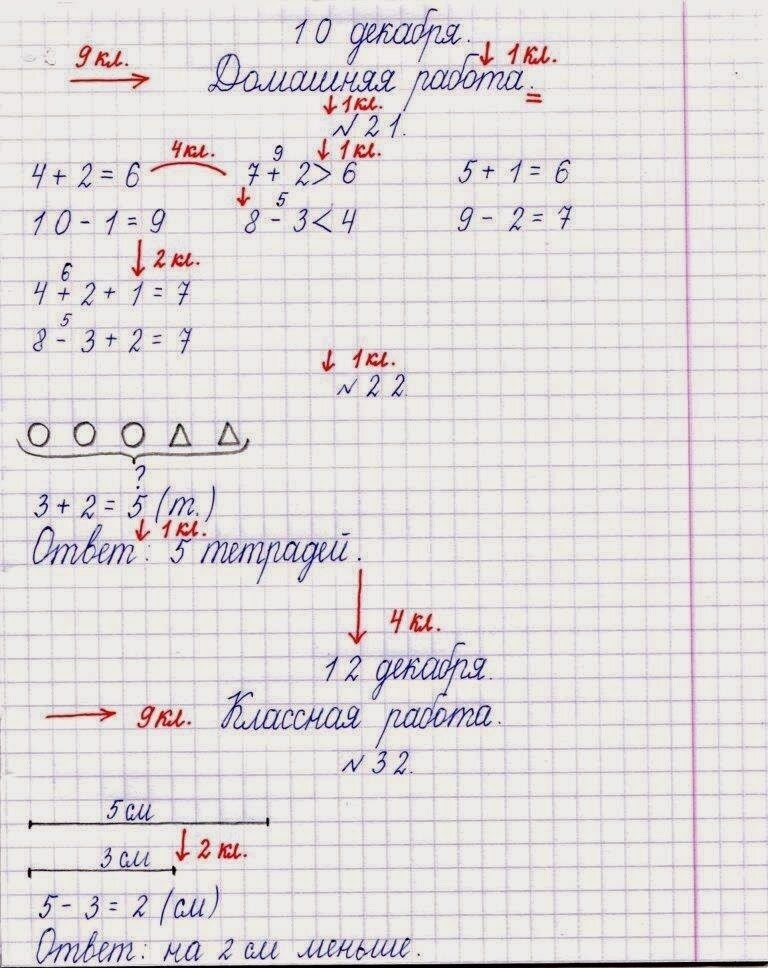 10 декабря.
9 кл. Домашняя работа. 1 кл.
1 кл.
№ 21.
4 + 2 = 6 4 кл. 7 + 2 > 6 1 кл. 5 + 1 = 6
9
10 - 1 = 9 8 - 3 < 4 9 - 2 = 7
5
2 кл.
6
4 + 2 + 1 = 7
5
8 - 3 + 2 = 7
1 кл.
№ 22.
?
3 + 2 = 5 (т.)
1 кл.
Ответ: 5 тетрадей.
4 кл.
12 декабря.
9 кл. Классная работа.
№ 32.
5 см
3 см 2 кл.
5 - 3 = 2 (см)
Ответ: на 2 см меньше.